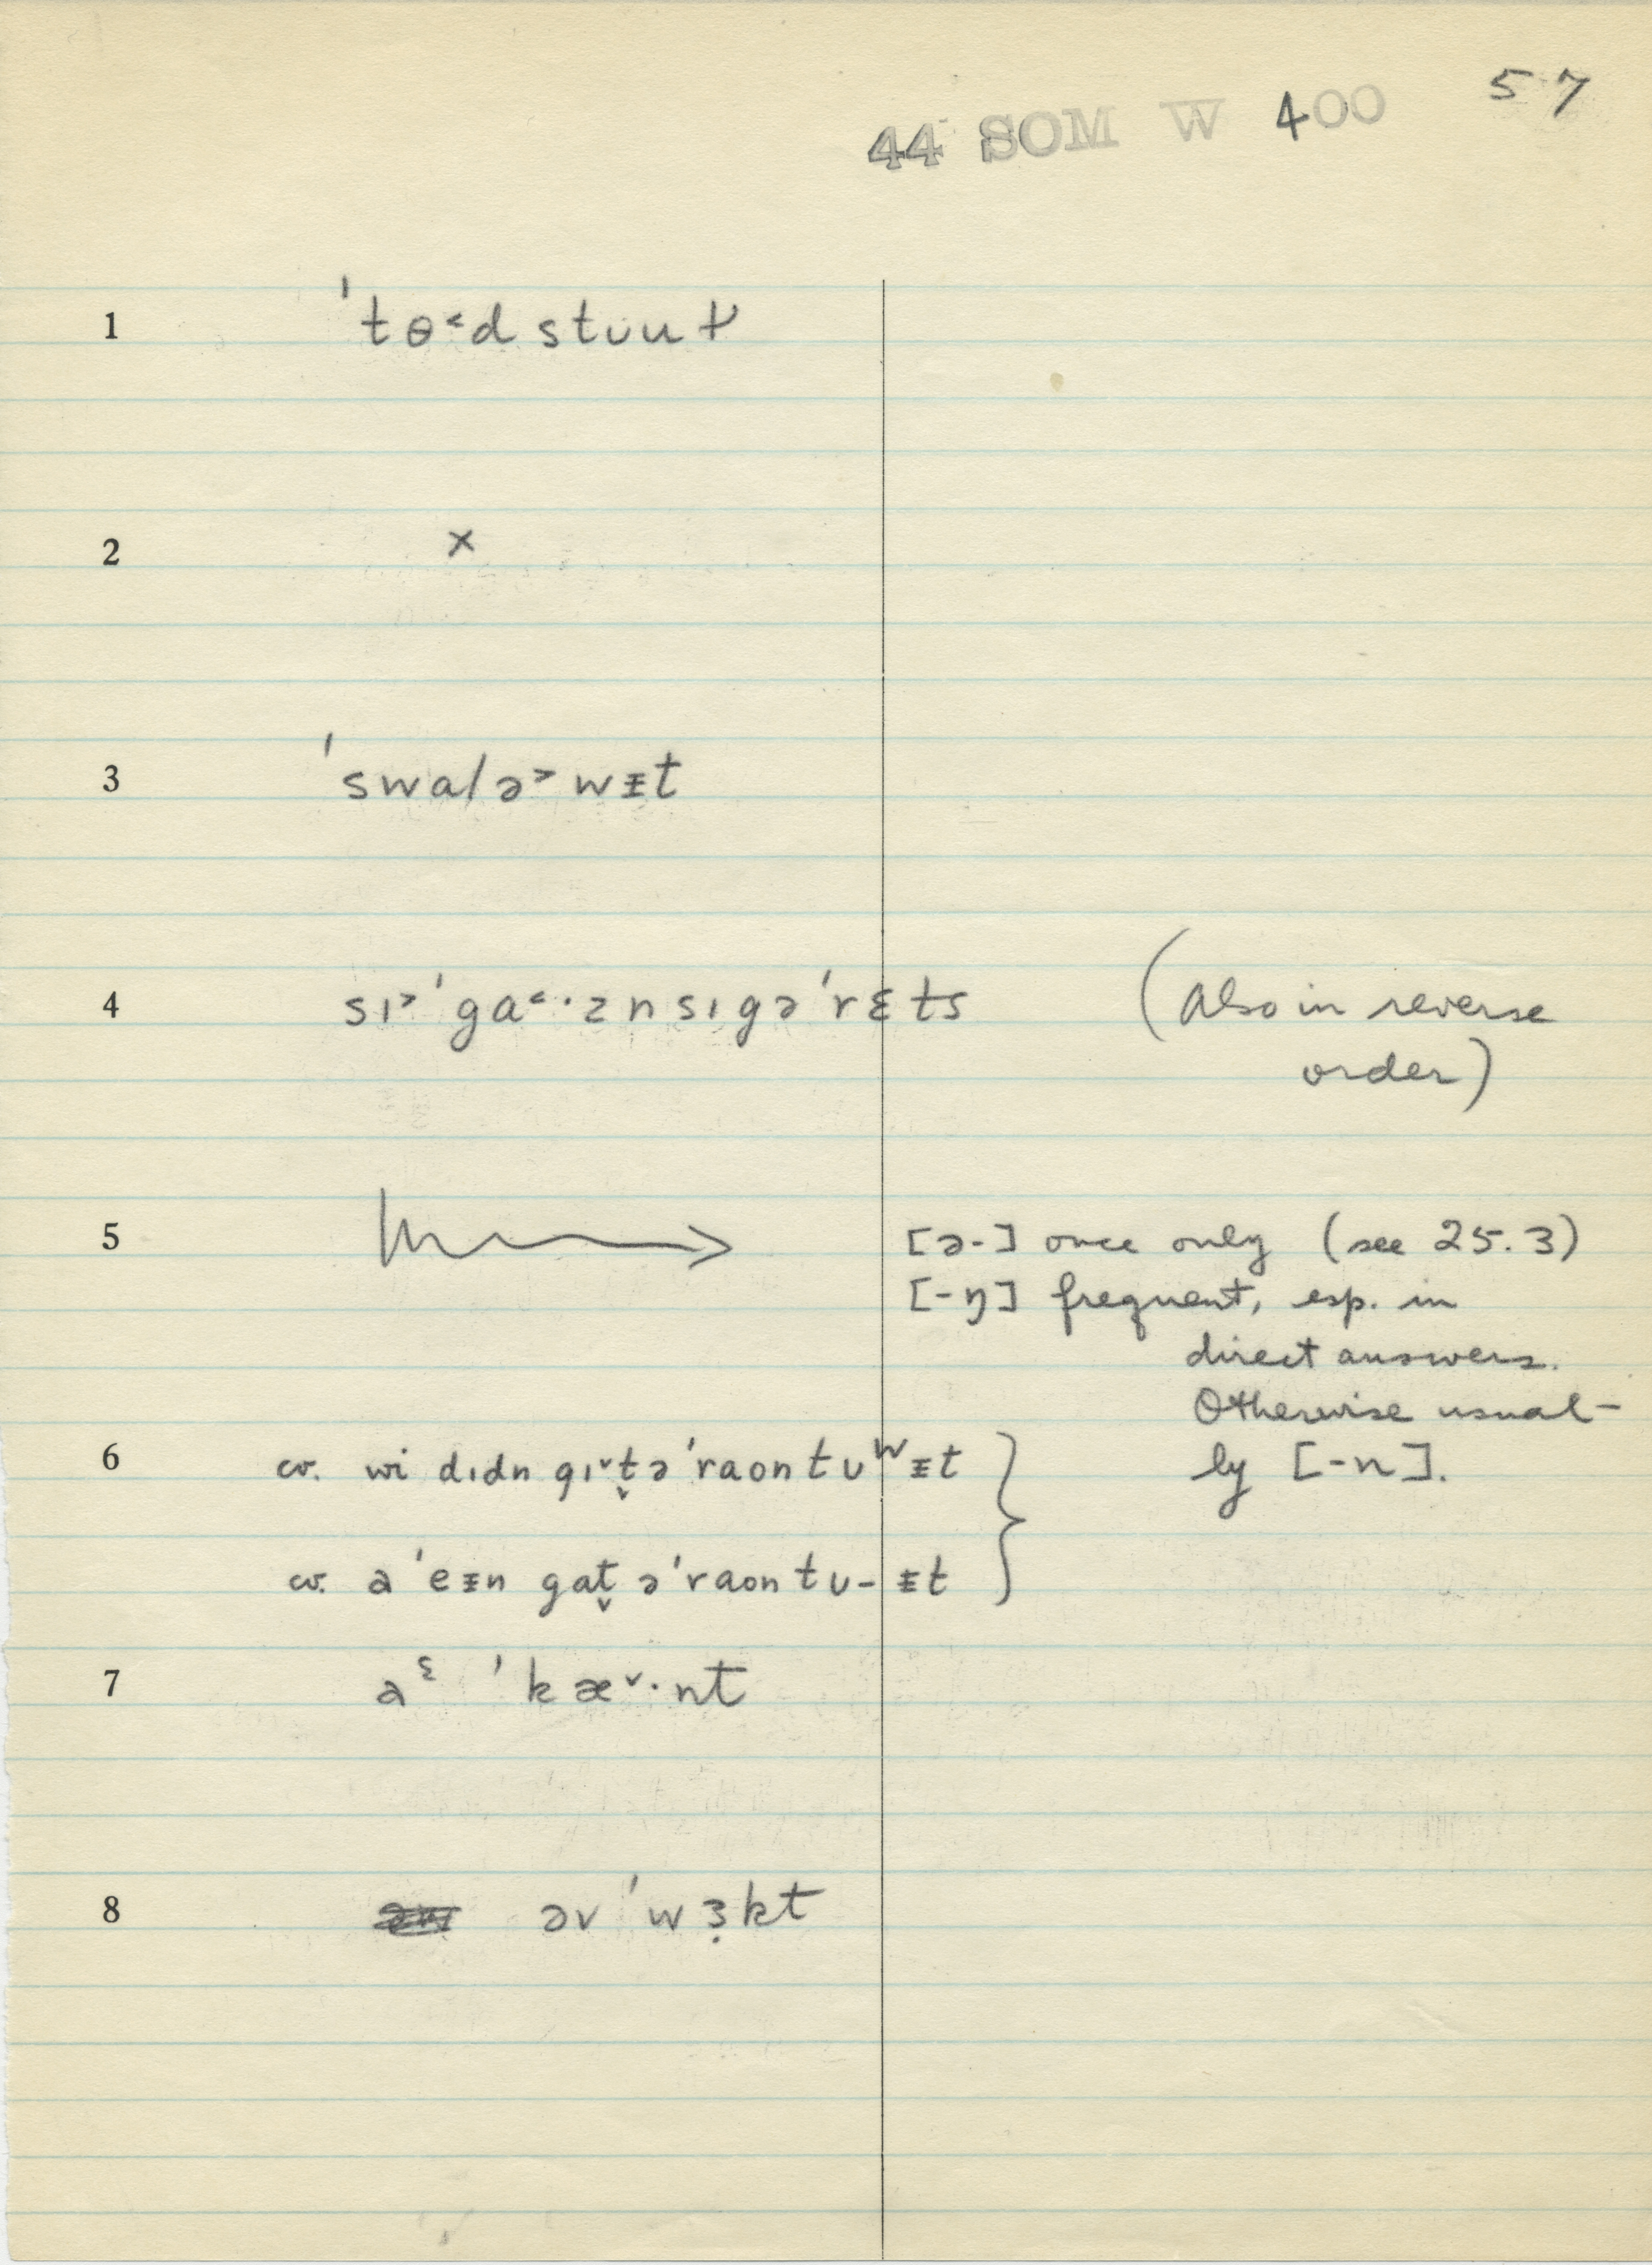 57
44 SOM W 400
1 ˈtɵ˂d stʊuɫ
2 ×
3 ˈswalə˃wᵻt
4 sɪ˃ˈga˂·ənsɪgəˈrɛts (Also in reverse
order)
5 [ə-] once only (see 25.3)
[-ŋ] frequent, esp. in
direct answers.
Otherwise usual-
ly [-n].
6 cv. wi dɪdn gɪ˅t̬əˈraontʊʷᵻt
cv. aˈeᵻn gat̬əˈraontʊ-ᵻt
7 aᵋ ˈkæ˅·nt
8 əvˈwɜ̣kt